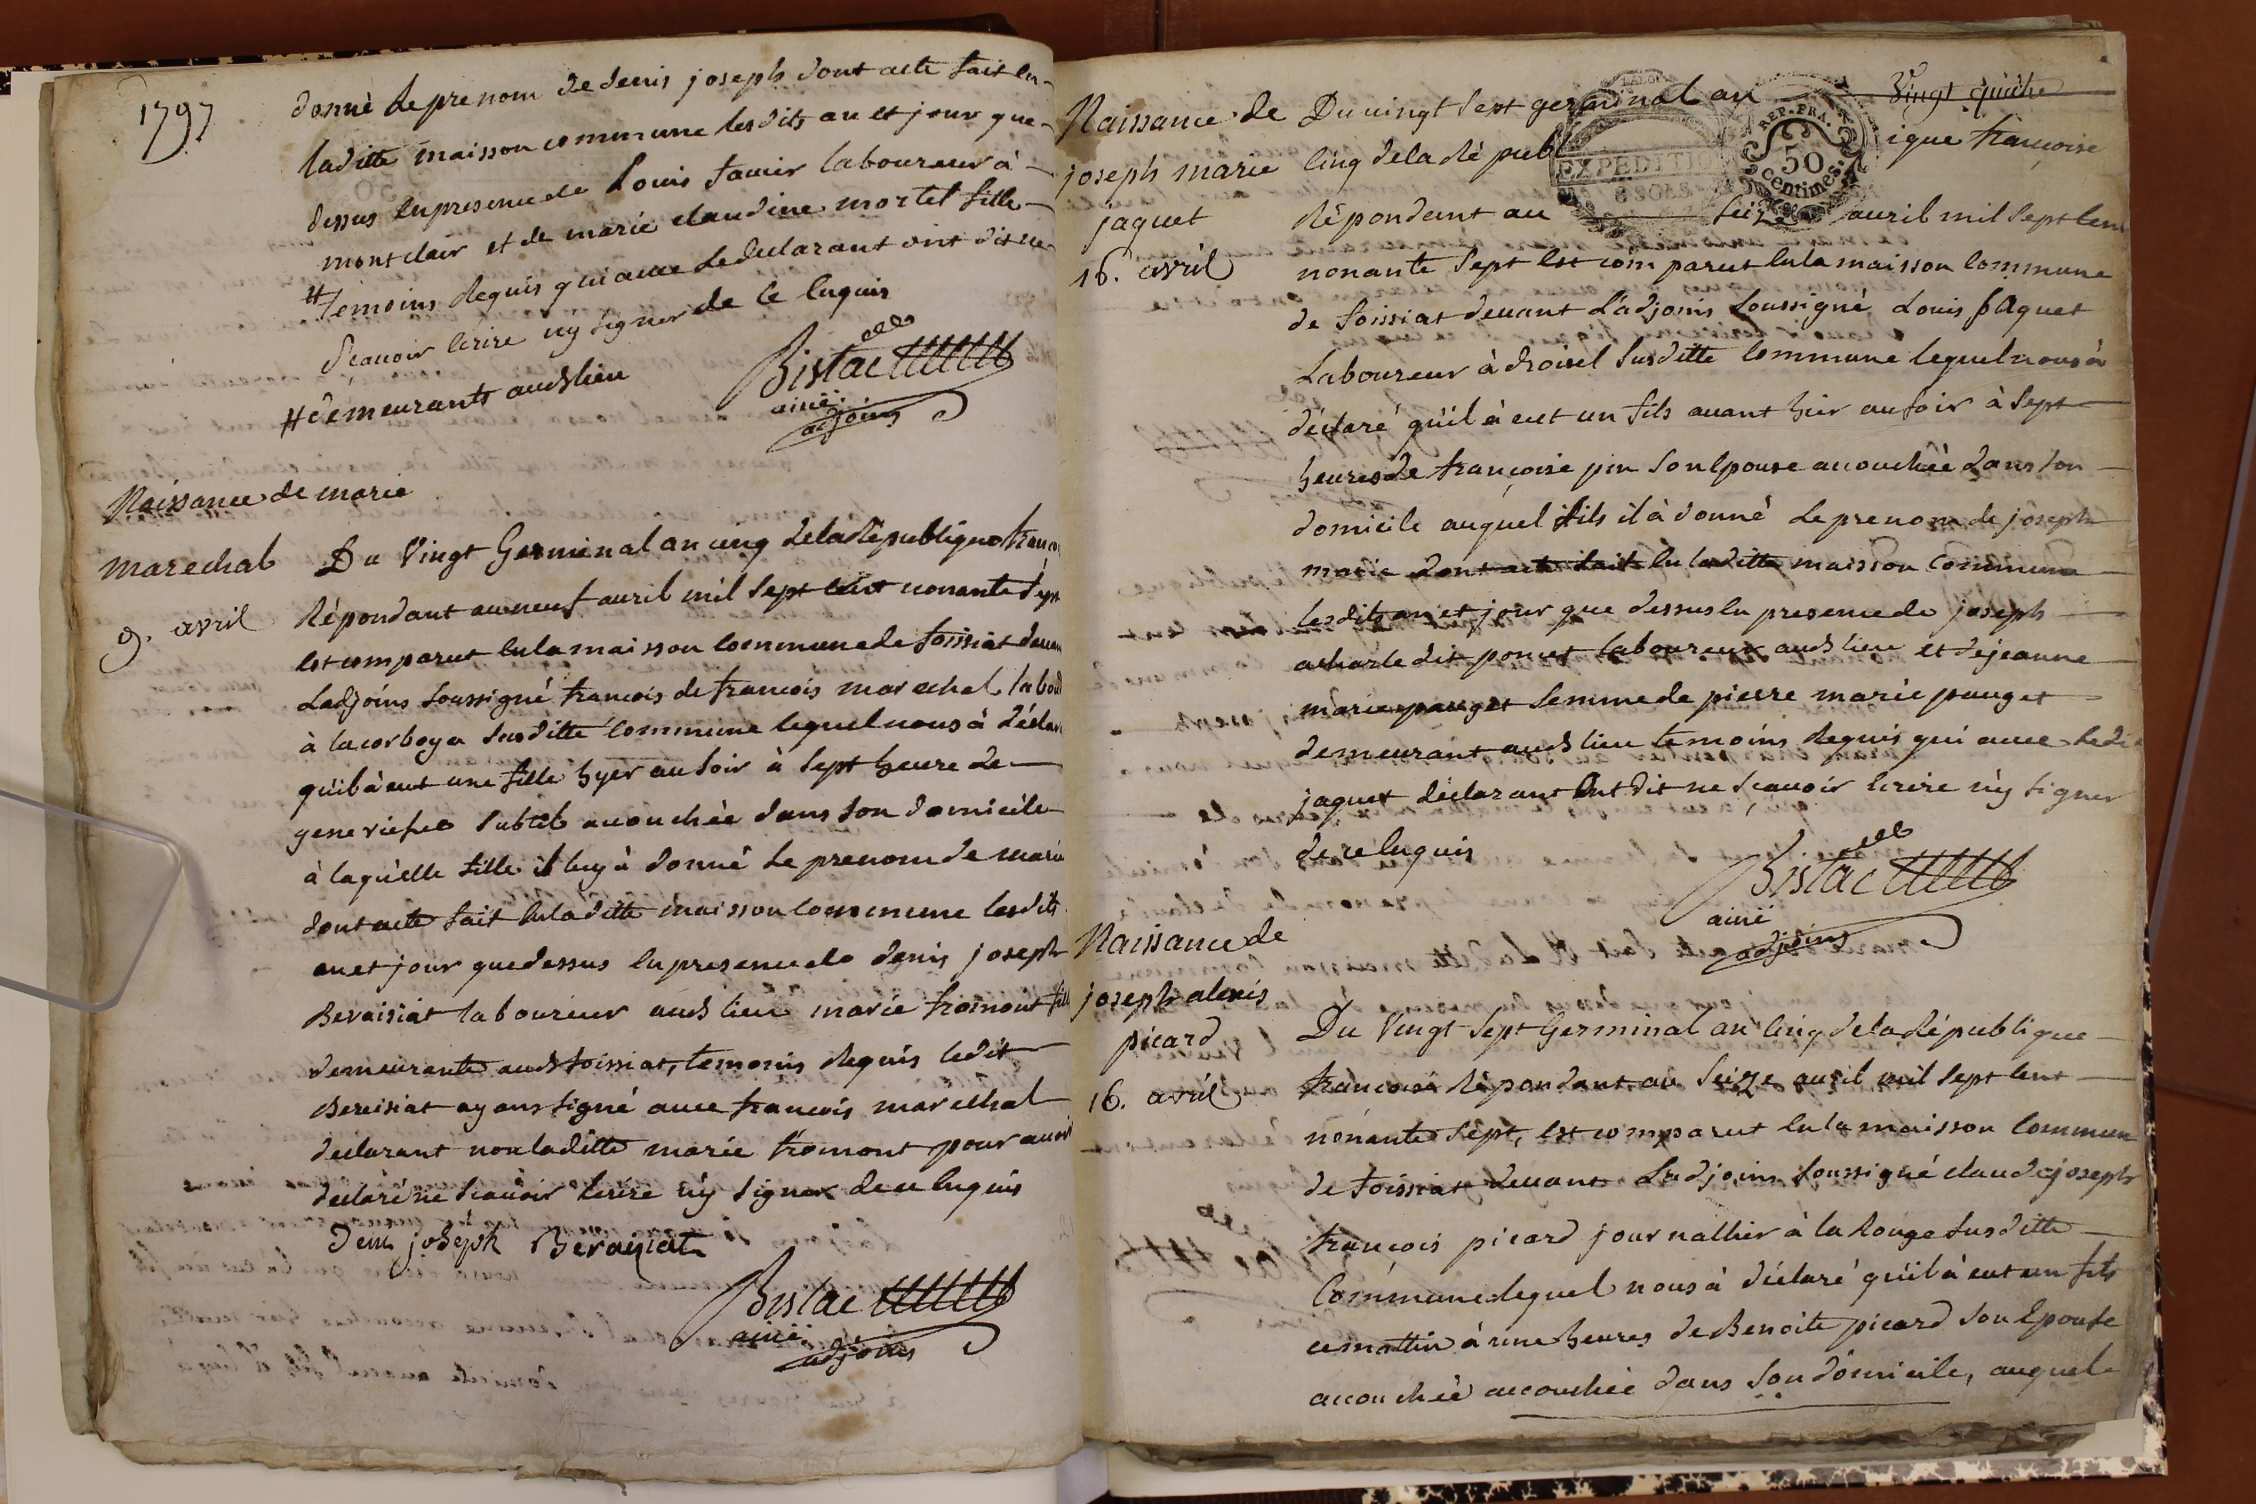 1797
donné le prenom de denis joseph dont acte fait en
laditte maisson commune lesdits an et jour que
dessus en presence de Louis favier laboureur à
montclair et de marie claudine mortel fille
# temoins requis qui avec le declarant ont dit ne
sçavoir ecrire ny signer de ce enquis
# demeurants audt lieu
Bistac
ainé
adjoins
Naissance de marie
marechal
9. avril
Du Vingt Germinal an cinq de la Republique franco
Répondant au neuf avril mil sept cent nonante sept
est comparut en la maisson commune de foissiat devan
Ladjoins soussigné francois de francois marechal labou
à la corboya susditte commune lequel nous à déclar
qu'il à eut une fille hyer au soir à sept heure de
genevieve subtil accouchée dans son domicile
à laquelle fille il luy à donné le prenom de marie
dont acte fait en laditte maisson commune lesdits
an et jour que dessus en presence de denis joseph
Beraisiat laboureur audt lieu marie fromont fill
demeurante audt foissiat, temoins requis ledit
Bereisiat ayans signé avec francois marechal
declarant non laditte marie fromont pour avoir
declaré ne scavoir ecrire ny signer de ce enquis
Deni joseph Beraisiat
Bistac
ainé
adjoins
Vingt quitte
Naissance de
joseph marie
jaquet
16. avril
Du vingt sept germinal an
cinq de la Républ ique françoise
EXPEDITION
8 SOLS
REP. FRA.
50
centimes
Répondant au seize avril mil sept cen
nonante sept est comparut en la maisson commune
de foissiat devant L'adjoins soussigné Louis jaquet
Laboureur à droisel susditte commune lequel nous à
déclaré qu'il à eut un fils avant hier au soir à sept
heures de françoise pin son Epouse accouchée dans son
domicile auquel fils il à donné le prenom de joseph
marie dont acte fait en laditte maisson commune
lesdits an et jour que dessus en presence de joseph
acharle dit poncet laboureur audt lieu et de jeanne
marie pauget femme de pierre marie pauget
demeurant audt lieu temoins requis qui avec ledi
jaquet déclarant ont dit ne sçavoir ecrire ny signer
de ce enquis
Bistac
ainé
adjoins
Naissance de
joseph alexis
picard
16. avril
Du Vingt sept Germinal an cinq de la République
francoise Répondant au seize avril mil sept cent
nonante sept, est comparut en la maisson commun
de foissiat devant Ladjoins soussigné claude joseph
francois picard journallier à la Rouge susditte
Commune lequel nous à déclaré qu'il à eut un fils
ce mattin à une heures de Benoite picard son Epouse
accouchée accouchée dans son domicile, auquel